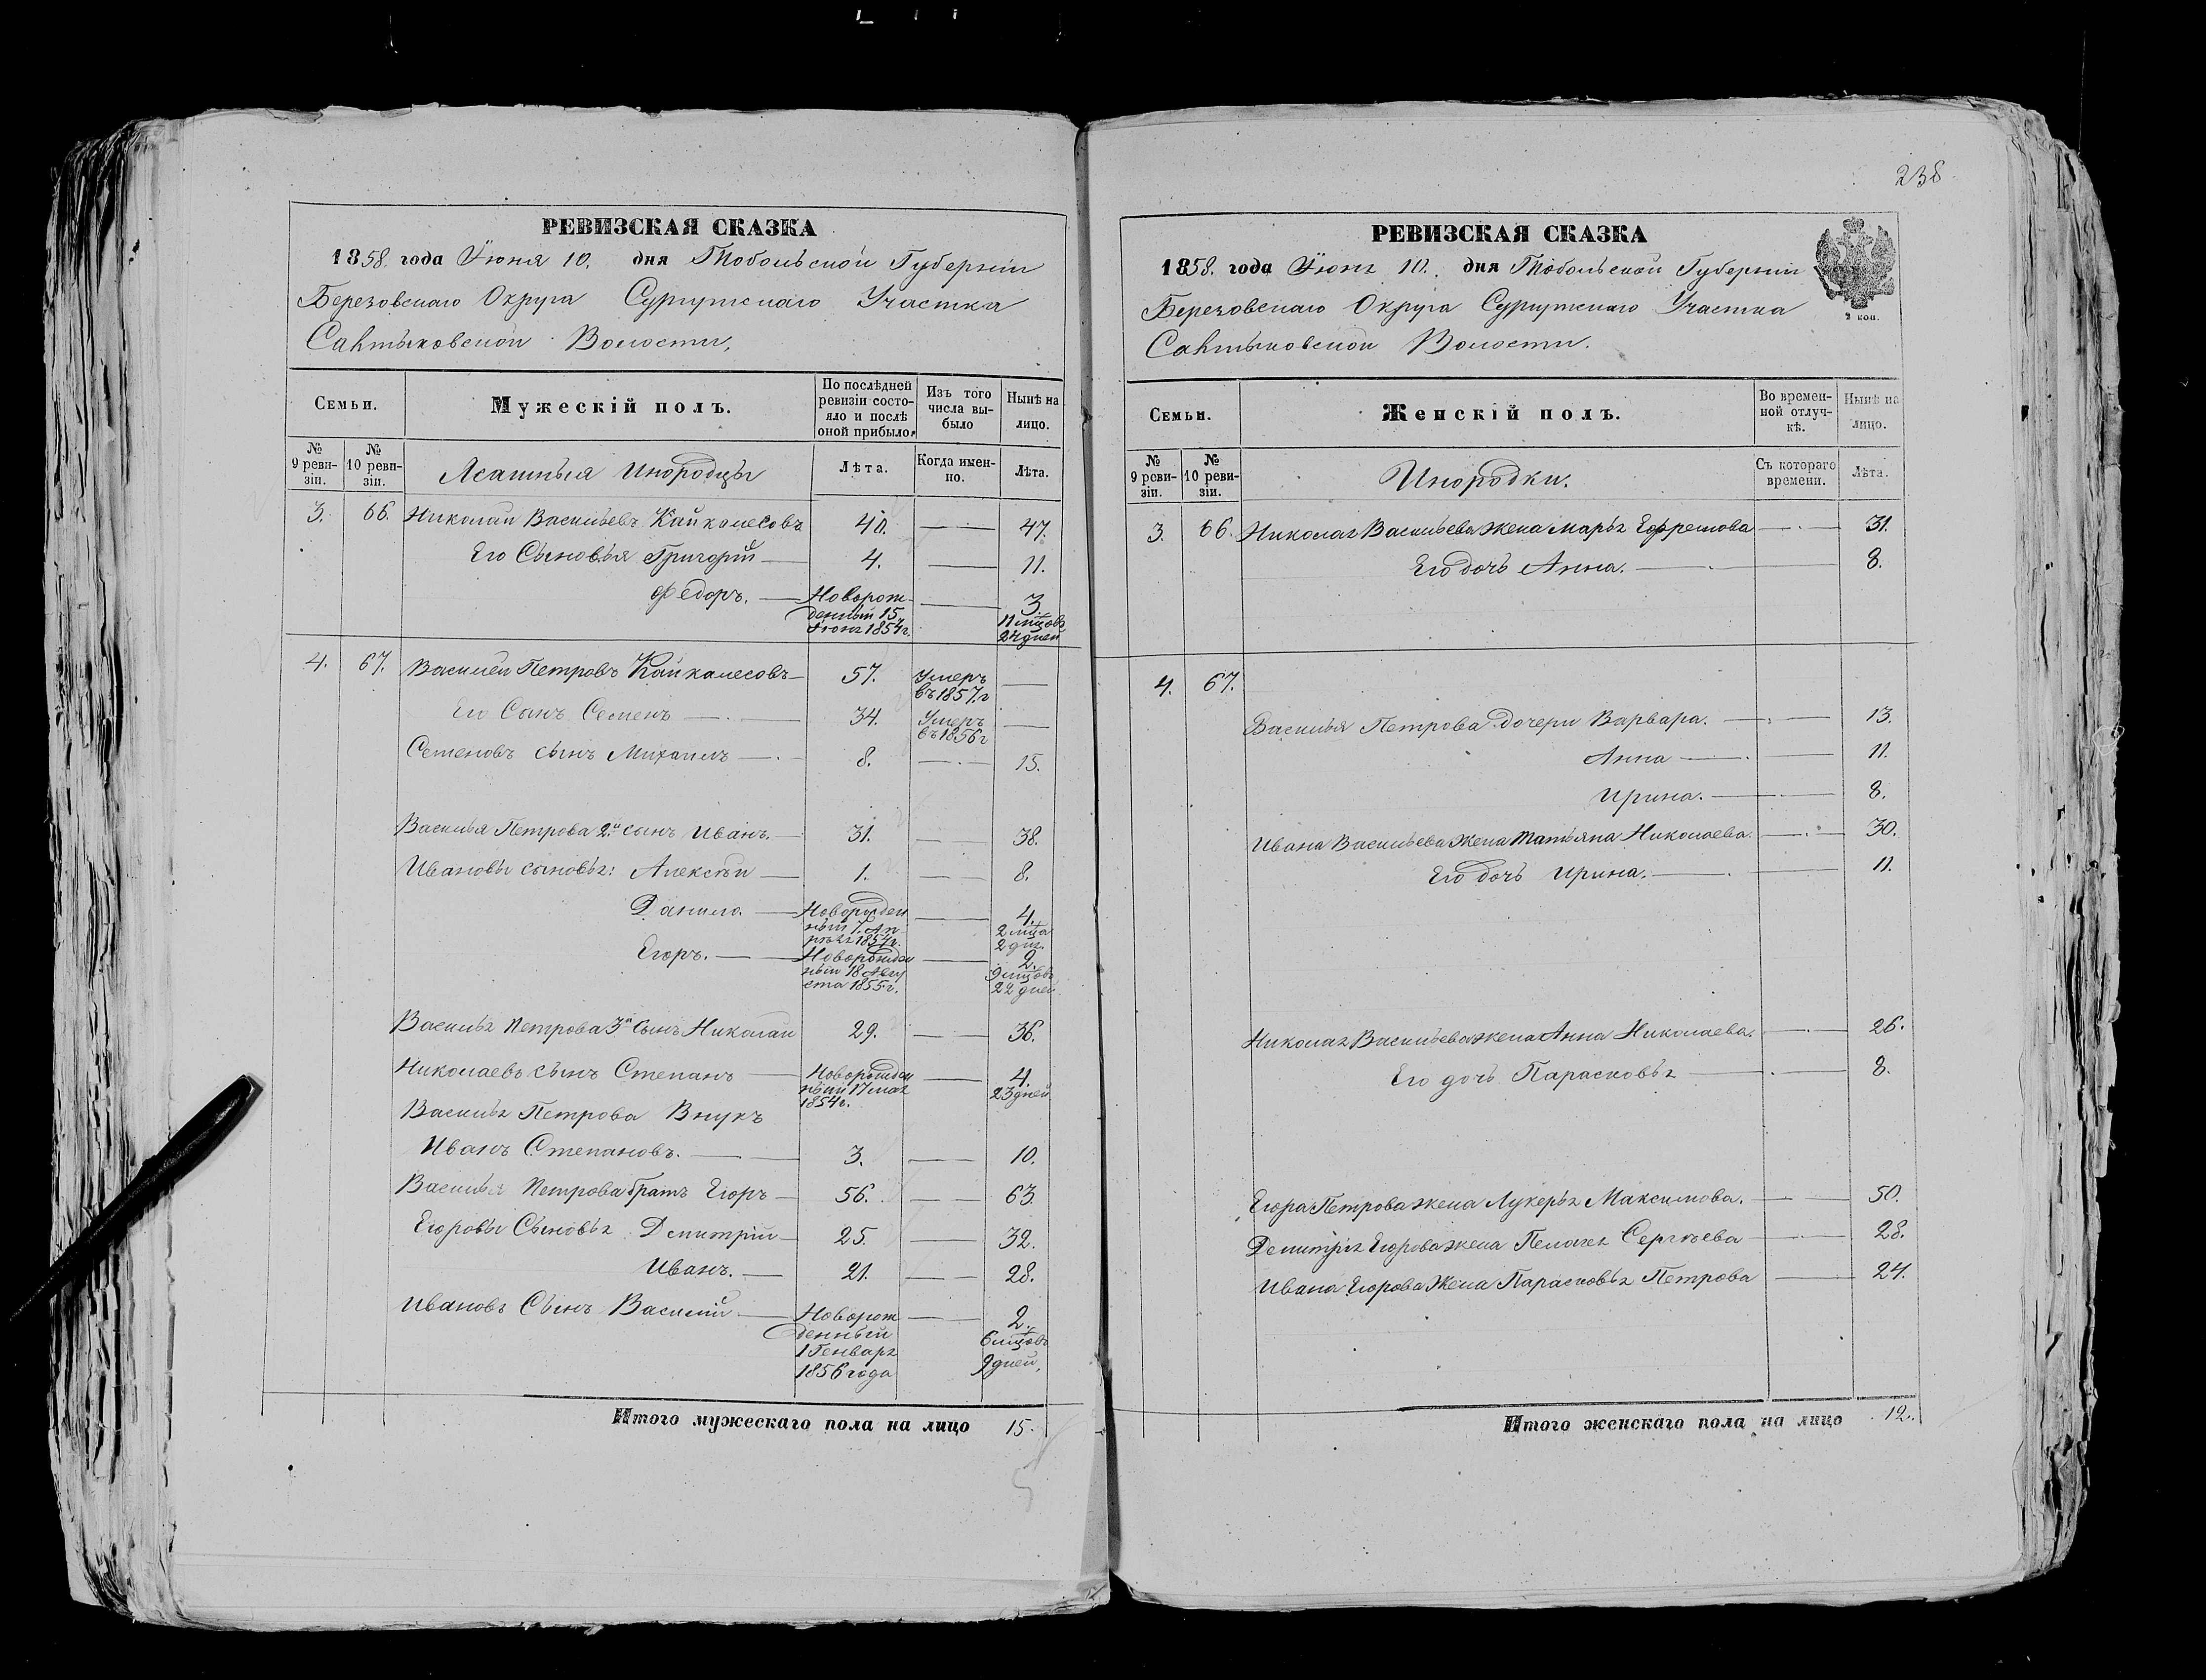 238
РЕВИЗСКАЯ СКАЗКА
1858. года Іюня 10. дня Тобольской Губерніи
Березовскаго Округа Сургутскаго Участка
Салтыковской Волости,
Семьи.
Мужескій полъ.
По послѣдней ревизіи состо-
яло и послѣ оной прибыло.
Изъ того числа вы-
было
Нынѣ на лицо.
№ 9 реви-
зіи.
№ 10 реви-
зіи.
Ясашныя Инородцы
Лѣта.
Когда имен-
но.
Лѣта.
3. 66. Николай Васильевъ Кайкалесовъ 40. 47.
Его Сыновья Григорій 4. 11.
Федоръ. Новорож
денный 15
Іюня 1854 г. 3.
11 мцовъ
24 дней
4. 67. Василей Петровъ Кайкалесовъ 57. Умеръ
въ 1857. г
Его Сынъ Семенъ 34. Умеръ
въ 1856 г
Семеновъ сынъ Михаилъ 8. 15.
Василья Петрова 2й сынъ Иванъ. 31. 38.
Ивановы сыновья: Алексѣй 1. 8.
Данило. Новорожден
ный 7. Ап
рѣля 1854 г. 4.
2 мца
2 дня.
Егоръ. Новорожден
ный 18 Авгу
ста 1855 г. 2.
9 мцовъ
22 дней
Василья Петрова 3й сынъ Николай 29. 36.
Николаевъ сынъ Степанъ Новорожден
ный 17 мая
1854 г. 4.
23 дней
Василья Петрова Внукъ
Иванъ Степановъ. 3. 10.
Василья Петрова братъ Егоръ 56. 63.
Егоровы Сыновья Дмитрій 25. 32.
Иванъ. 21. 28.
Ивановъ Сынъ Василій Новорож
денный
1 Генваря
1856 года 2.
6 мцовъ
9 дней.
Итого мужескаго пола на лицо 15.
РЕВИЗСКАЯ СКАЗКА
1858. года Іюня 10. дня Тобольской Губерніи
Березовскаго Округа Сургутскаго Участка
2 коп.
Салтыковской Волости.
Семьи.
Женскій полъ.
Во времен-
ной отлуч-
кѣ.
Нынѣ на лицо.
№ 9 реви-
зіи.
№ 10 реви-
зіи.
Инородки.
Съ котораго времени.
Лѣта.
3. 66. Николая Васильева жена Марья Ефремова 31.
Его дочь Анна. 8.
4. 67.
Василья Петрова дочери Варвара. 13.
Анна 11.
Ирина. 8.
Ивана Васильева жена Татьяна Николаева. 30.
Его дочь Ирина. 11.
Николая Васильева жена Анна Николаева. 26.
Его дочь Парасковья 8.
Егора Петрова жена Лукерья Максимова. 50.
Дмитрія Егорова жена Пелагея Сергѣева 28.
Ивана Егорова Жена Парасковья Петрова 24.
Итого женскаго пола на лицо 12.